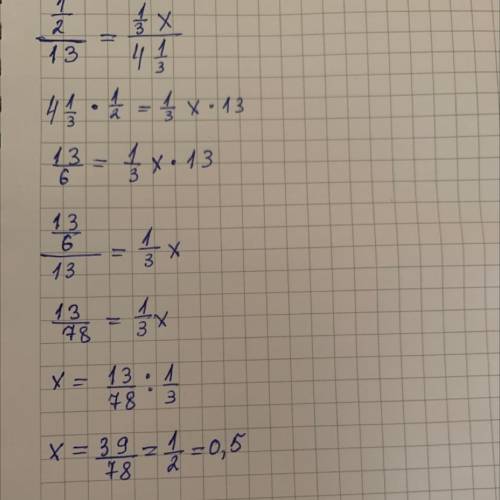 1/2 / 13 = 1/3 x / 4 1/3
4 1/3 · 1/2 = 1/3 x · 13
13/6 = 1/3 x · 13
13/6 / 13 = 1/3 x
13/78 = 1/3 x
x = 13/78 : 1/3
x = 39/78 = 1/2 = 0,5